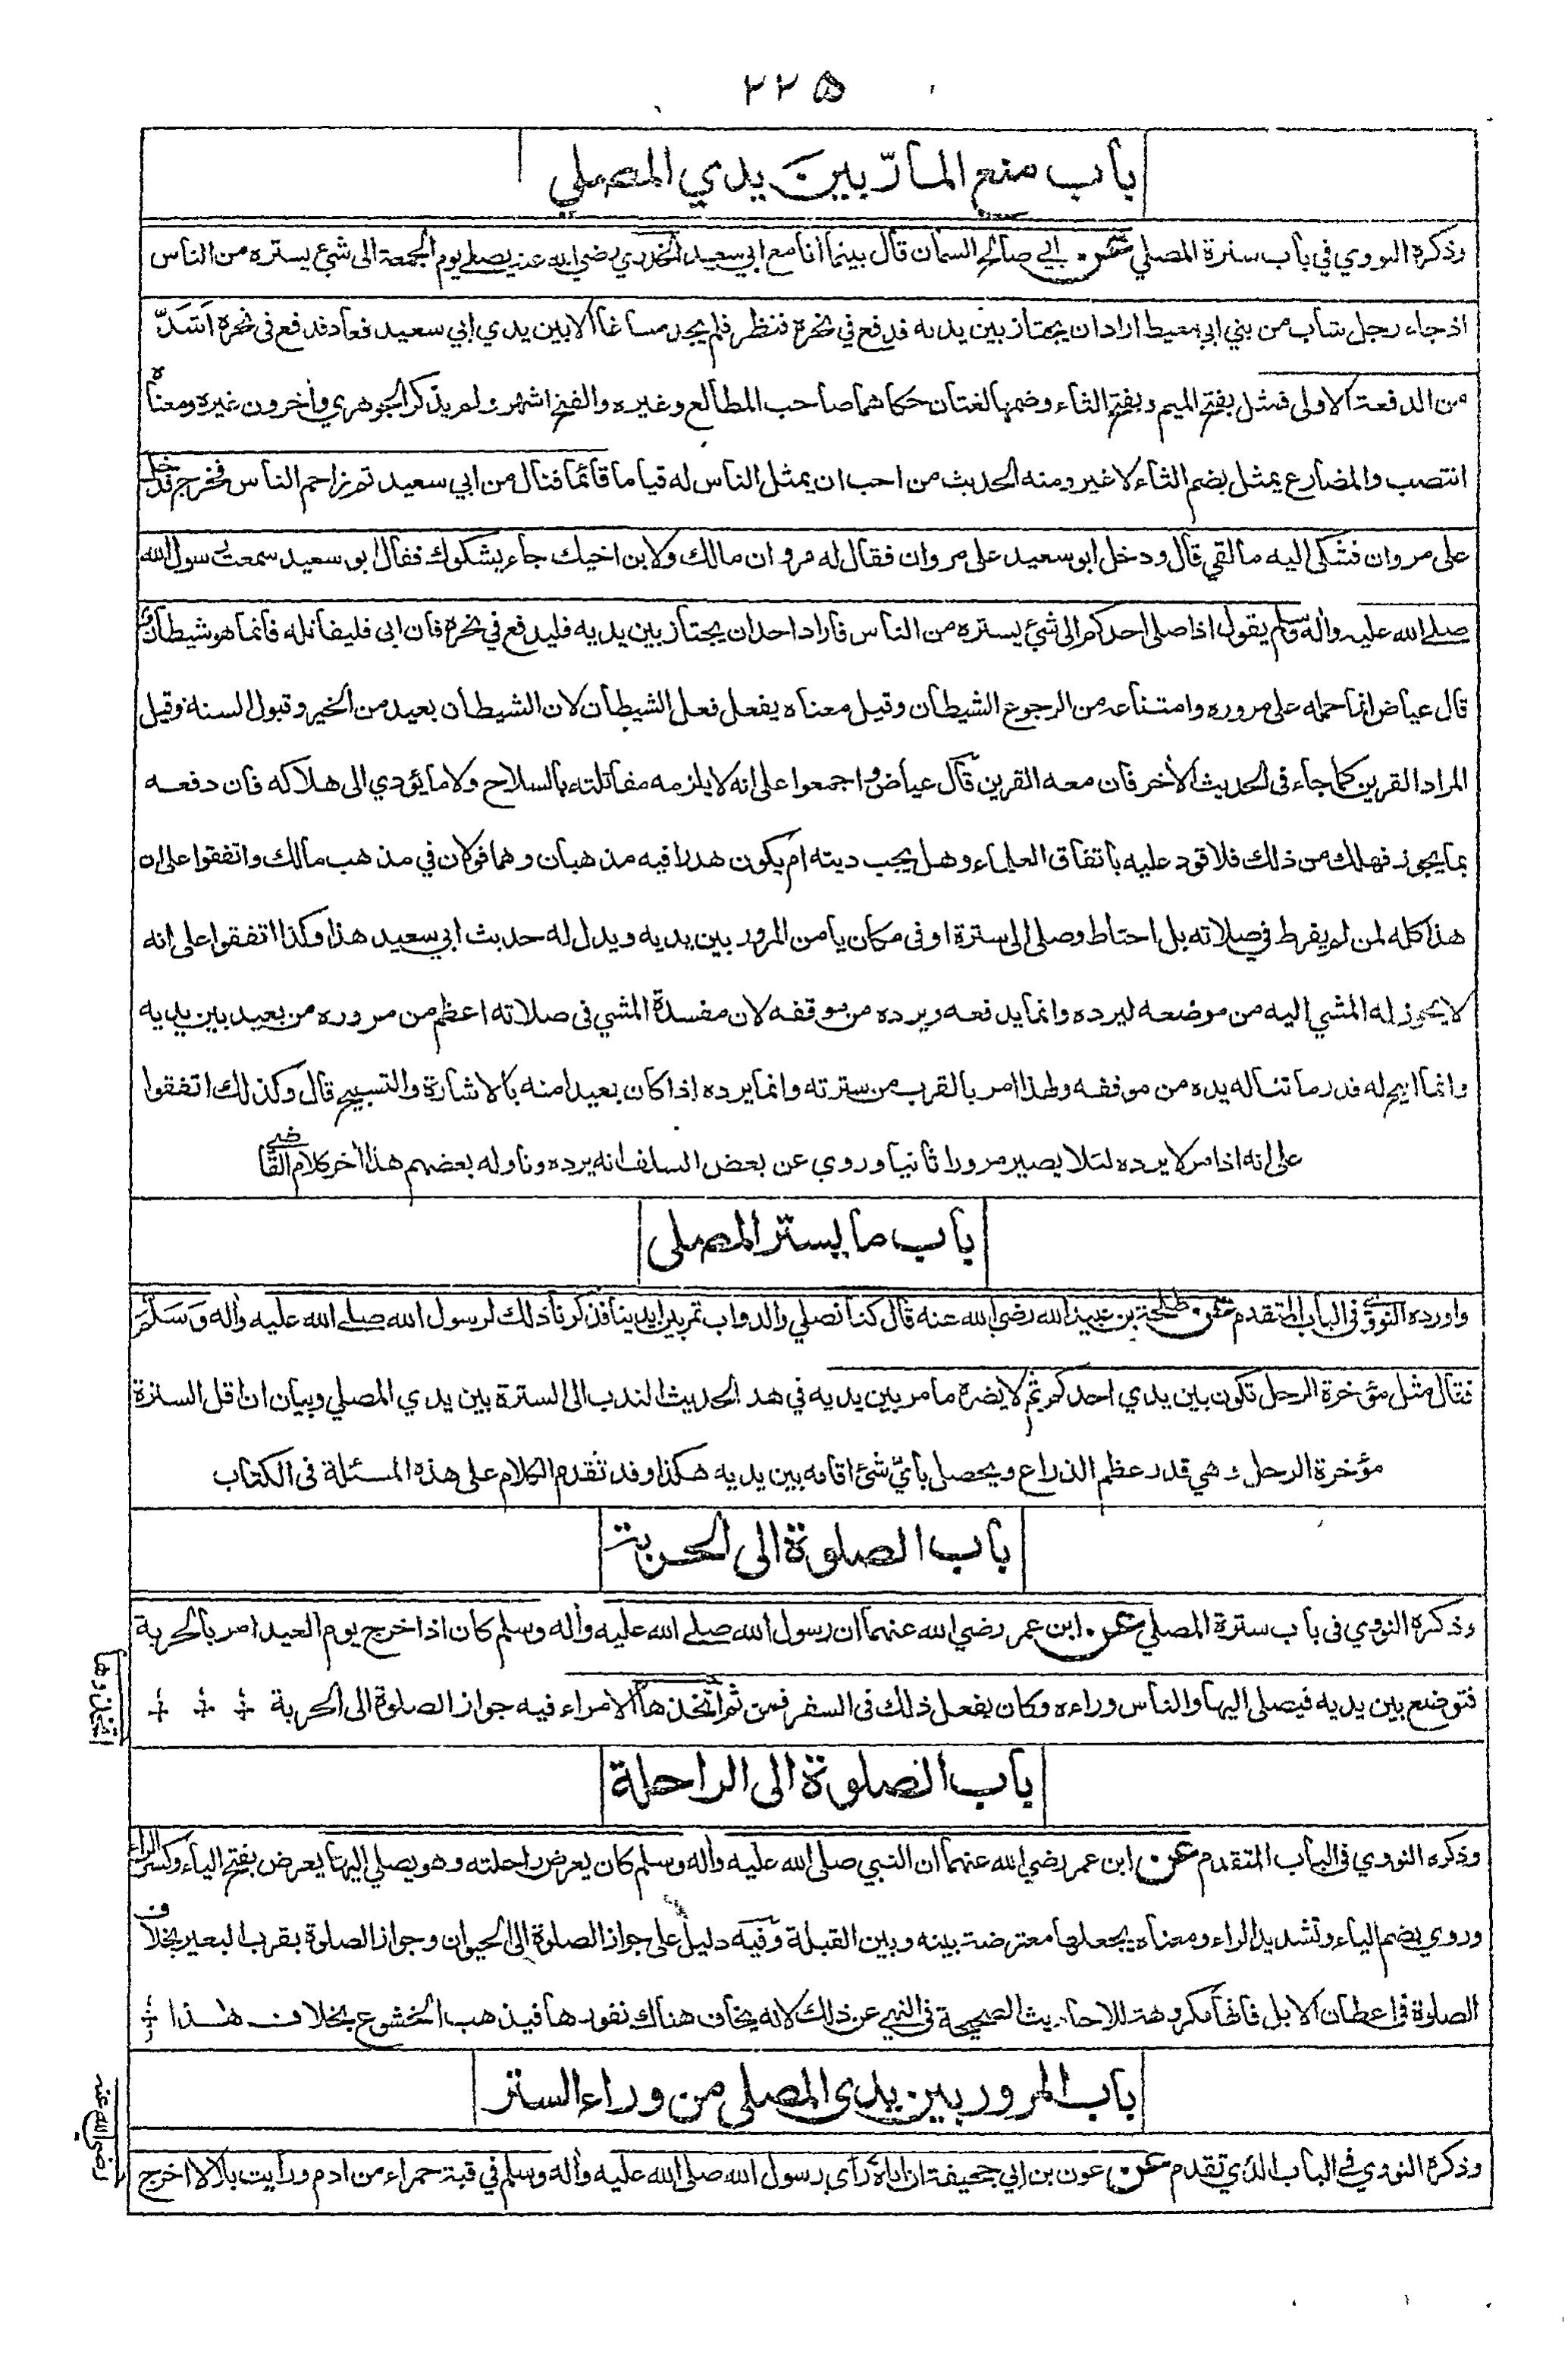 ٢٢٥
باب منع المارّ بين يدي المصلي
وذكره النووي في باب سترة المصلي عن ابي صالح السمان قال بينما انا مع ابي سعيد الخدري رضي الله عنه يصلي يوم الجمعة الى شئ يستره من الناس
اذ جاء رجل شاب من بني ابي معيط اراد ان يجتاز بين يديه فدفع في نحره فنظر فلم يجد مساغا الا بين يدي ابي سعيد فعاد فدفع في نحره اشدّ
من الدفعة الاولى فمثل بفتح الميم وبفتح الثاء وضمها لغتان حكاهما صاحب المطالع وغيره والفتح اشهر ولم يذكر الجوهري وأخرون غيره ومعناه
انتصب والمضارع يمثل بضم الثاء لا غير ومنه الحديث من احب ان يمثل الناس له قياما قائما فنال من ابي سعيد ثم زاحم الناس فخرج فدخل
على مروان فشكى اليه ما لقي قال ودخل ابو سعيد على مروان فقال له مروان مالك ولابن اخيك جاء يشكوك فقال ابو سعيد سمعت رسول الله
صلى الله عليه وأله وسلم يقول اذا صلى احدكم الى شئ يستره من الناس فاراد احد ان يجتاز بين يديه فليدفع في نحره فان ابى فليقاتله فانما هو شيطان
قال عياض انما حمله على مروره وامتناعه من الرجوع الشيطان وقيل معناه يفعل فعل الشيطان لان الشيطان بعيد من الخير وقبول السنة وقيل
المراد القرين كما جاء فى الحديث الأخر فان معه القرين قال عياض واجمعوا على انه لا يلزمه مقاتلته بالسلاح ولا ما يؤدي الى هلاكه فان دفعه
بما يجوز فهلك من ذلك فلا قود عليه باتفاق العلماء وهل يجب ديته ام يكون هدرا فيه مذهبان وهما قولان في مذهب مالك واتفقوا على ان
هذا كله لمن لم يفرط في صلاته بل احتاط وصلى الى سترة او فى مكان يامن المرور بين يديه ويدل له حديث ابي سعيد هذا وكذا اتفقوا على انه
لا يجوز له المشي اليه من موضعه ليرده وانما يدفعه ويرده من موقفه لان مفسدة المشي فى صلاته اعظم من مروره من بعيد بين يديه
وانما ابيح له قدر ما تناله يده من موقفه ولهذا امر بالقرب من سترته وانما يرده اذا كان بعيدا منه بالاشارة والتسبيح قال وكذلك اتفقوا
على انه اذا مر لا يرده لئلا يصير مرورا ثانيا وروي عن بعض السلف انه يرده وتاوله بعضهم هذا أخر كلام القاضي
باب ما يستر المصلى
واورده النووي فى الباب المتقدم عن طلحة بن عبيد الله رضي الله عنه قال كنا نصلي والدواب تمر بين ايدينا فذكرنا ذلك لرسول الله صلى الله عليه وأله وَسَلَّمَ
فقال مثل مؤخرة الرحل تكون بين يدي احدكم ثم لا يضره ما مر بين يديه في هذ الحديث الندب الى السترة بين يدي المصلي وبيان ان اقل السترة
مؤخرة الرحل وهي قدر عظم الذراع ويحصل بأيّ شئ اقامه بين يديه هكذا وقد تقدم الكلام على هذه المسئلة فى الكتاب
باب الصلوة الى الحربة
وذكره النووي فى باب سترة المصلي عن ابن عمر رضي الله عنهما ان رسول الله صلى الله عليه وأله وسلم كان اذا خرج يوم العيد امر بالحربة
فتوضع بين يديه فيصلى اليها والناس وراءه وكان يفعل ذلك فى السفر فمن ثم اتخذها الامراء فيه جواز الصلوة الى الحربة
اتخذوها
باب الصلوة الى الراحلة
وذكره النووي فى الباب المتقدم عن ابن عمر رضي الله عنهما ان النبي صلى الله عليه وأله وسلم كان يعرض راحلته وهو يصلي اليها يعرض بفتح الياء وكسر الراء
وروي بضم الياء وتشديد الراء ومعناه يجعلها معترضة بينه وبين القبلة وفيه دليل على جواز الصلوة الى الحيوان وجواز الصلوة بقرب البعير بخلاف
الصلوة فى اعطان الابل فانها مكروهة للاحاديث الصحيحة فى النهي عن ذلك لانه يخاف هناك نفورها فيذهب الخشوع بخلاف هذا
باب المرور بين يدى المصلي من وراء الستر
وذكره النووي فى الباب الذي تقدم عن عون بن ابي جحيفة ان اباه رأى رسول الله صلى الله عليه وأله وسلم في قبة حمراء من ادم ورأيت بلالا اخرج
رضي الله عنه